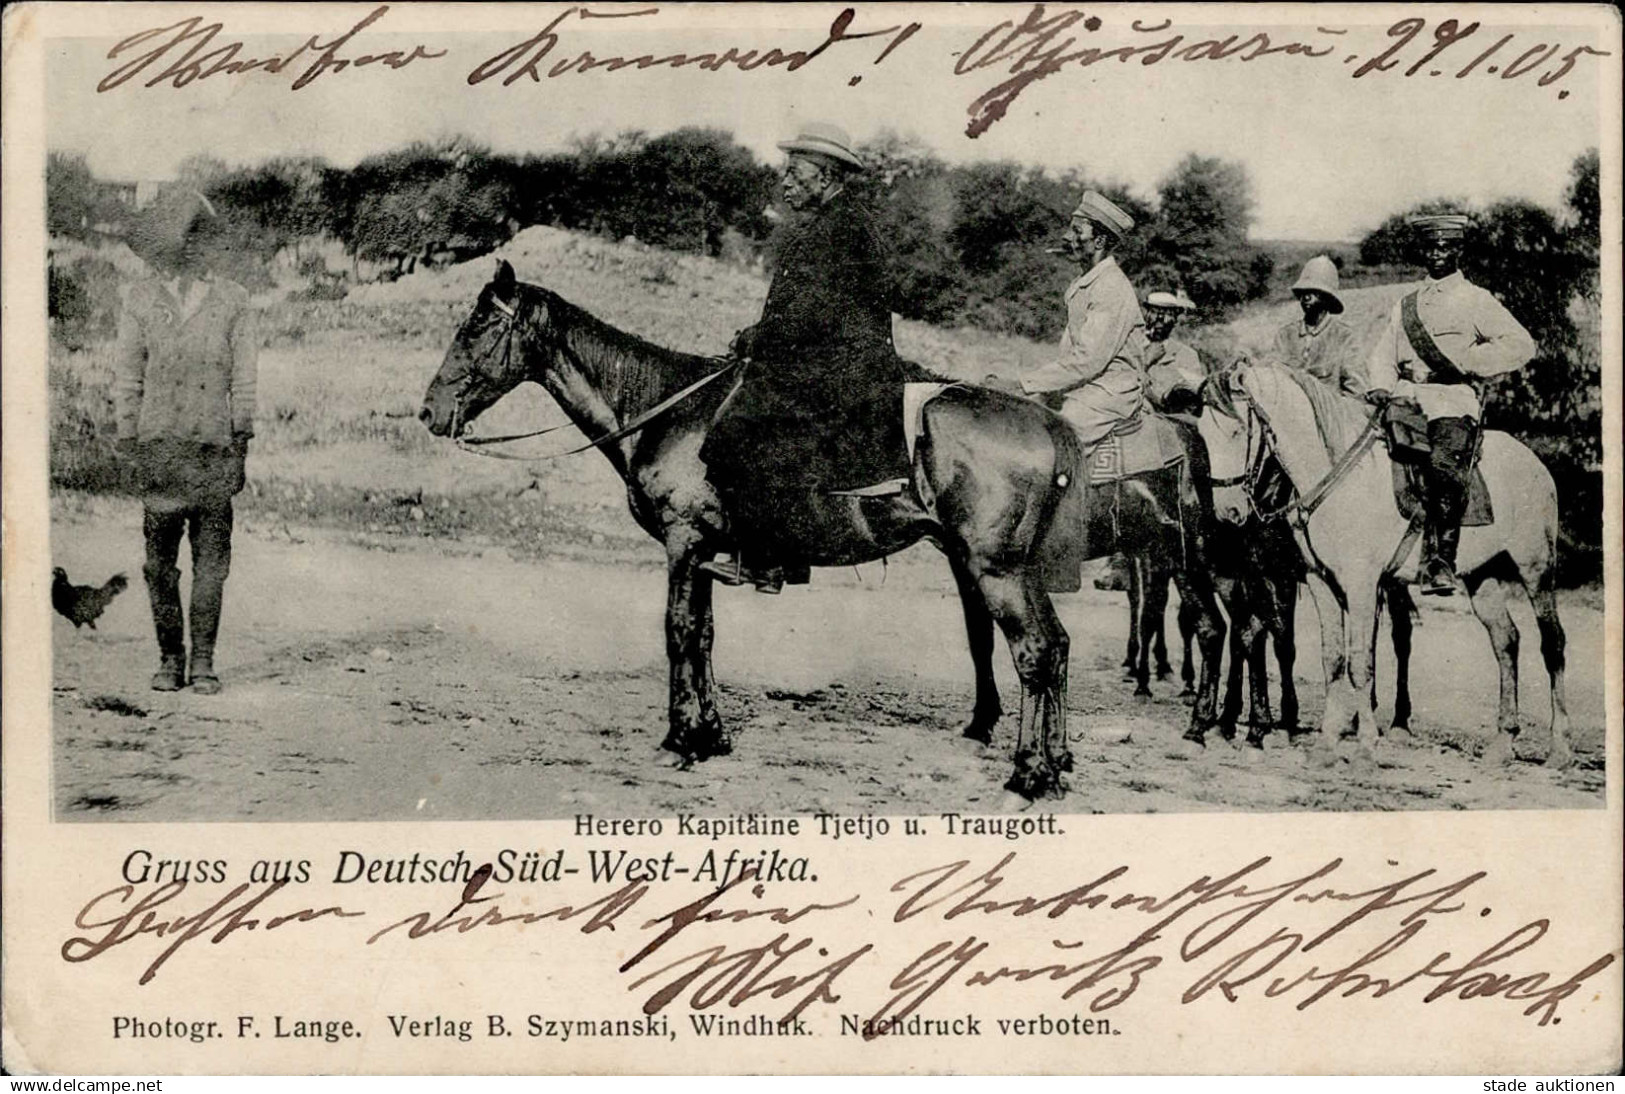 Werter Kamerad! Otjusasu. 29.1.05.
Herero Kapitäine Tjetjo u. Traugott.
Gruss aus Deutsch-Süd-West-Afrika.
Besten Dank für Unterschrift.
Mit Gruß
Photogr. F. Lange. Verlag B. Szymanski, Windhuk. Nachdruck verboten.
www.delcampe.net
stade auktionen